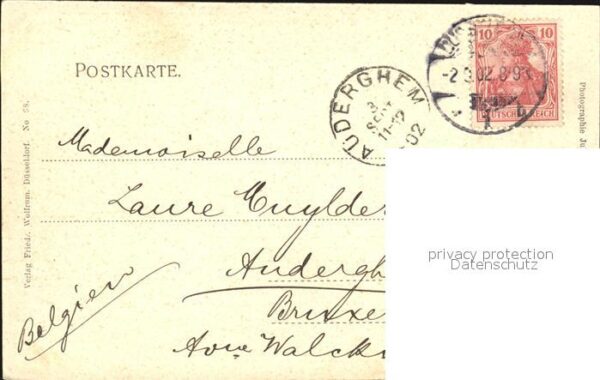 POSTKARTE.
AUDERGHEM
3
SEPT
11-
02
-2.9.02.8-9
10 10
DEUTSCHES REICH
Mademoiselle
Laure Muylder
Auderghe
Bruxe
Belgien
Verlag Friedr. Wolfrum, Düsseldorf. No 58.
Photographie Ju
privacy protection
Datenschutz